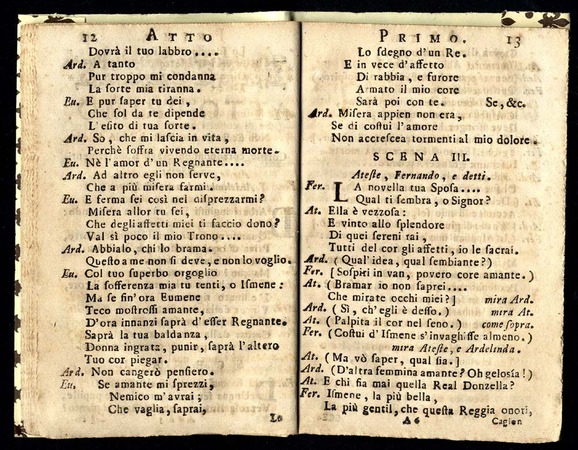 12 ATTO
Dovrà il tuo labbro....
Ard. A tanto
Pur troppo mi condanna
La sorte mia tiranna.
Eu. E pur saper tu dei,
Che sol da te dipende
L'esito di tua sorte.
Ard. Sò, che mi lascia in vita,
Perchè soffra vivendo eterna morte.
Eu. Nè l'amor d'un Regnante....
Ard. Ad altro egli non serve,
Che a più misera farmi.
Eu. E ferma sei così nel disprezzarmi?
Misera allor tu sei,
Che degli affetti miei ti faccio dono?
Val sì poco il mio Trono....
Ard. Abbialo, chi lo brama.
Questo a me non si deve, e non lo voglio.
Eu. Col tuo superbo orgoglio
La sofferenza mia tu tenti, o Ismene:
Ma se fin'ora Eumene
Teco mostrossi amante,
D'ora innanzi saprà d'esser Regnante.
Saprà la tua baldanza,
Donna ingrata, punir, saprà l'altero
Tuo cor piegar.
Ard. Non cangerò pensiero.
Eu. Se amante mi sprezzi,
Nemico m'avrai;
Che vaglia, saprai,
Lo
PRIMO. 13
Lo sdegno d'un Re.
E in vece d'affetto
Di rabbia, e furore
Armato il mio core
Sarà poi con te. Se, &c.
Ard. Misera appien non era,
Se di costui l'amore
Non accrescea tormenti al mio dolore.
SCENA III.
Ateste, Fernando, e detti.
Fer. LA novella tua Sposa....
Qual ti sembra, o Signor?
At. Ella è vezzosa:
E vinto allo splendore
Di quei sereni rai,
Tutti del cor gli affetti, io le sacrai.
Ard. (Qual'idea, qual sembiante?)
Fer. [Sospiri in van, povero core amante.)
At. (Bramar io non saprei....
Che mirate occhi miei?] mira Ard.
Ard. (Sì, ch'egli è desso.) mira At.
At. (Palpita il cor nel seno.) come sopra.
Fer. (Costui d'Ismene s'invaghisse almeno.)
mira Ateste, e Ardelinda.
At. (Ma vò saper, qual sia.]
Ard. (D'altra femmina amante? Oh gelosia!)
At. E chi fia mai quella Real Donzella?
Fer. Ismene, la più bella,
La più gentil, che questa Reggia onori,
A 6 Cagion